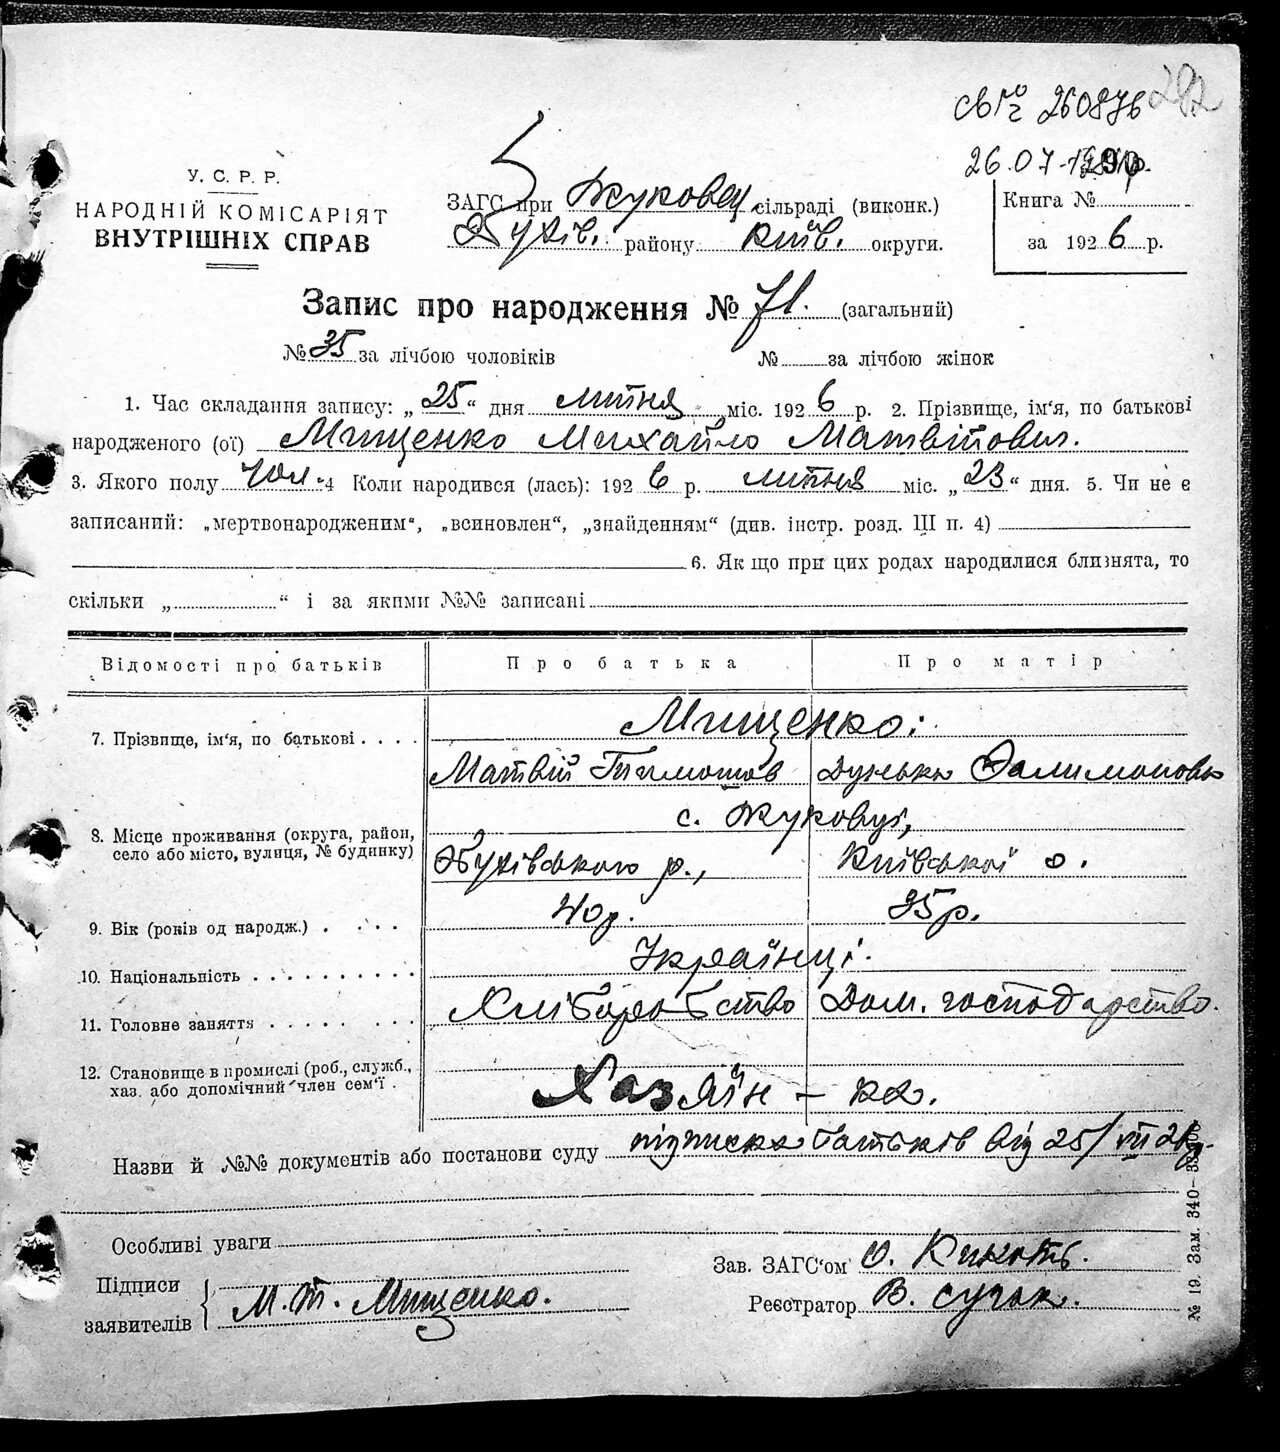 292
св Гч 260876
26.07.
У. С. Р. Р.
НАРОДНІЙ КОМІСАРІЯТ
ВНУТРІШНІХ СПРАВ
ЗАГС при Жуковец. сільраді (виконк.)
Обухів. району Київ. округи.
Книга №
за 1926 р.
Запис про народження № 71. (загальний)
№ 35 за лічбою чоловіків № за лічбою жінок
1. Час складання запису: „25“ дня липня міс. 1926 р. 2. Прізвище, ім'я, по батькові
народженого (ої) Мищенко Михайло Матвійович.
3. Якого полу чол. 4 Коли народився (лась): 1926 р. липня міс. „23“ дня. 5. Чи не є
записаний: „мертвонародженим“, „всиновлен“, „знайденням“ (див. інстр. розд. III п. 4)
6. Як що при цих родах народилися близнята, то
скільки „ “ і за якими №№ записані
Відомості про батьків Про батька Про матір
Мищенко:
7. Прізвище, ім'я, по батькові . . . .
Матвій Тимошов Дунька Филимонова
с. Жуковці,
8. Місце проживання (округа, район,
село або місто, вулиця, № будинку)
Обухівського р., Київської о.
9. Вік (років од народж.) . . . . 40 р. 35 р.
10. Національність . . . . . . . . . . Українці.
11. Головне заняття . . . . . . . . . Хліборобство Дом. господарство.
12. Становище в промислі (роб., служб.,
хаз. або допомічний член сем'ї .
Хазяїн –
Назви й №№ документів або постанови суду підписка батьків від 25/VII 26 р.
Особливі уваги
Підписи
заявителів
М. Т. Мищенко.
Зав. ЗАГС'ом О.
Реєстратор В. Сучок.
№ 19. Зам. 340–